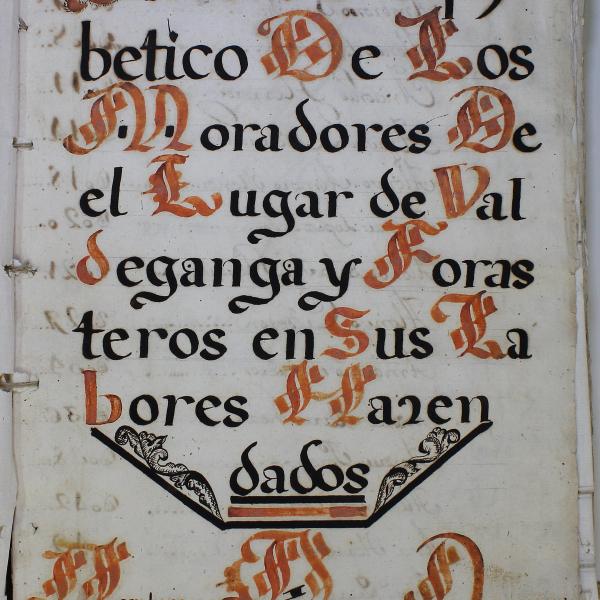 betico De Los
Moradores De
el Lugar de Val
deganga y Foras
teros en Sus La
bores Hazen
dados